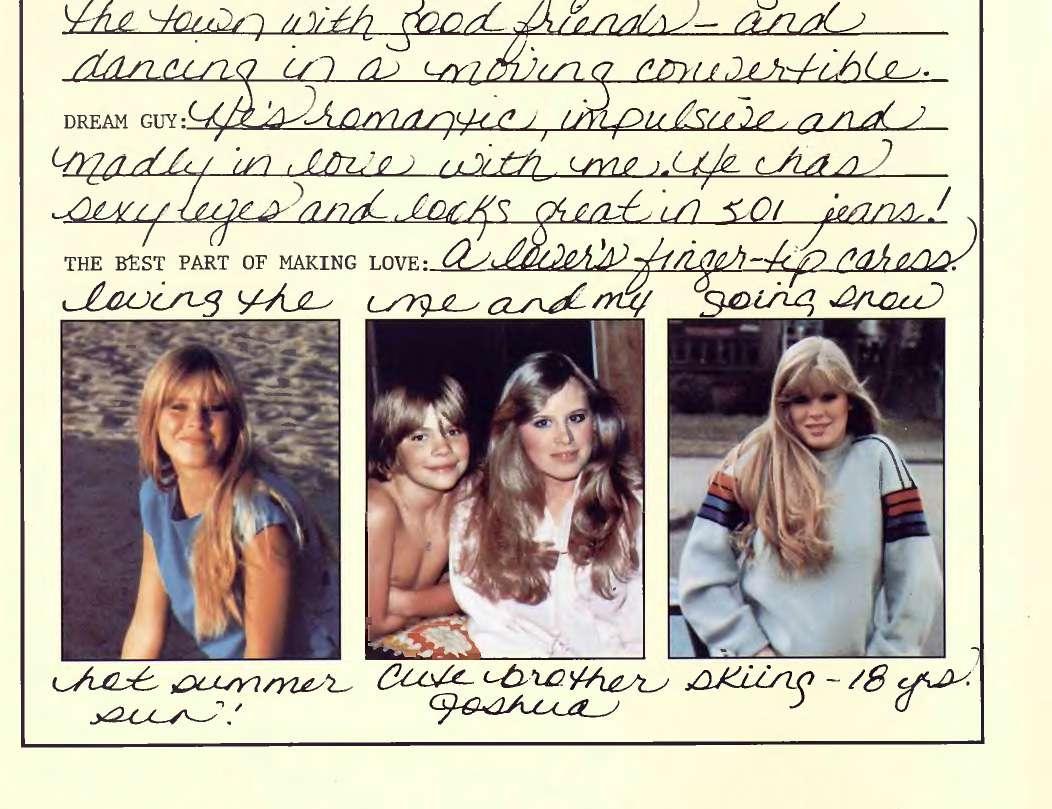 the town with good friends – and
dancing in a moving convertible.
DREAM GUY: He's romantic, impulsive and
madly in love with me. He has
sexy eyes and looks great in 501 jeans!
THE BEST PART OF MAKING LOVE: A lover's finger-tip caress.
loving the
hot summer
sun!
me and my
cute brother
Joshua
going snow
skiing – 18 yrs.